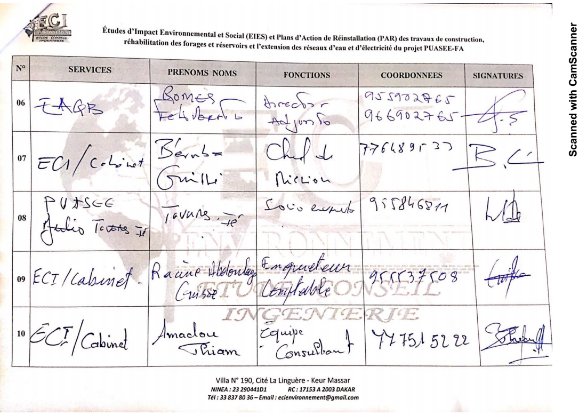 ECI
Études d'Impact Environnemental et Social (EIES) et Plans d'Action de Réinstallation (PAR) des travaux de construction,
réhabilitation des forages et réservoirs et l'extension des réseaux d'eau et d'électricité du projet PUASEE-FA
N° SERVICES PRENOMS NOMS FONCTIONS COORDONNEES SIGNATURES
06 EAGB Director Adjunto 955902765
966902765
07 ECI/Cabinet Chef de Mission
B.C
08 PUASEE
Julio Tavares Tavares
09 ECI/Cabinet Racine Abdoulaye Guisse Enqueteur Comptable 955537508
10 ECI/Cabinet Amadou Thiam Equipe Consultant 77 751 52 22
ENVIRONNEMENT
ETUDE CONSEIL
INGENIERIE
Villa N° 190, Cité La Linguère - Keur Massar
NINEA : 23 290441D1 RC : 17153 A 2003 DAKAR
Tél : 33 837 80 36 – Email : ecienvironnement@gmail.com
Scanned with CamScanner